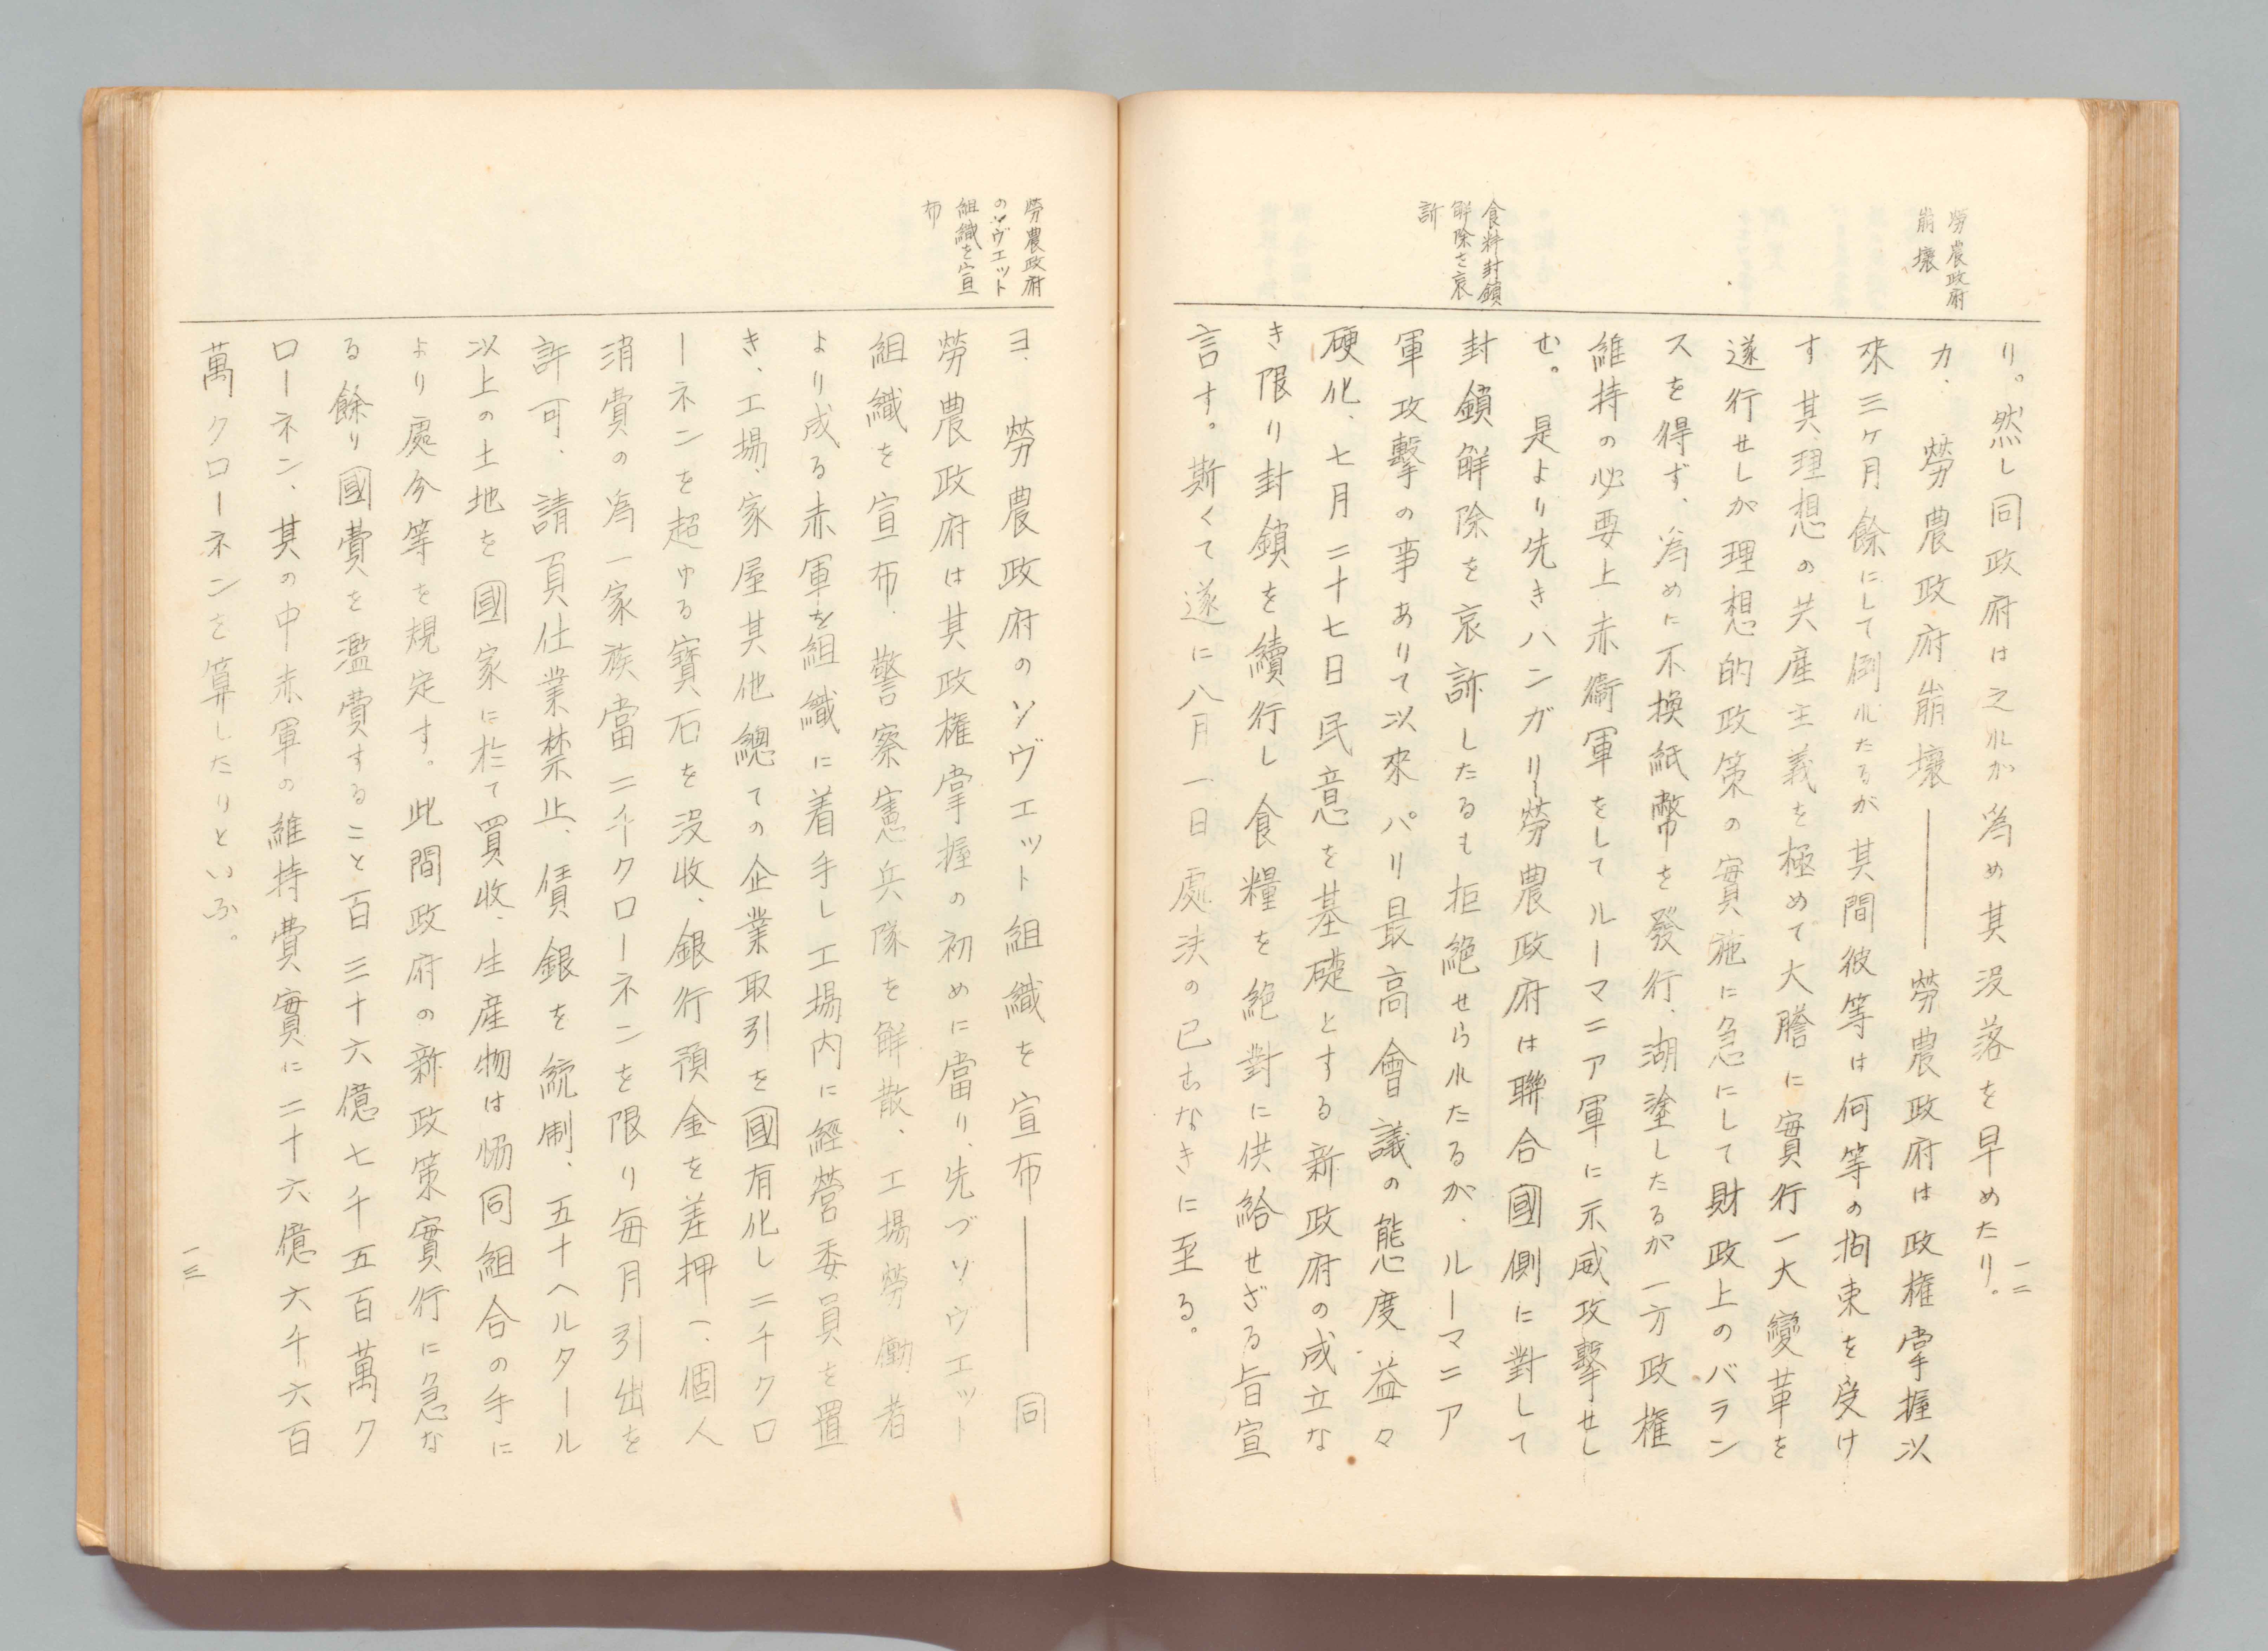 勞農政府
崩壞
食料封鎖
解除を哀
訴
り。然し同政府は之れが為め其没落を早めたり。
カ、勞農政府崩壞———勞農政府は政権掌握以
來三ヶ月餘にして倒れたるが其間彼等は何等の拘束を受け
す其理想の共産主義を極めて大謄に實行一大變革を
遂行せしが理想的政策の實施に急にして財政上のバラン
スを得ず、為めに不換紙幣を發行、湖塗したるが一方政権
維持の必要上赤衞軍をしてルーマニア軍に示威攻擊せし
む。是より先きハンガリー勞農政府は聯合國側に對して
封鎖解除を哀訴したるも拒絶せられたるが、ルーマニア
軍攻擊の事ありて以來パリ最高會議の態度益々
硬化、七月二十七日民意を基礎とする新政府の成立な
き限り封鎖を續行し食糧を絶對に供給せざる旨宣
言す。斯くて遂に八月一日處決の已むなきに至る。
一二
勞農政府
のソヴエット
組織を宣
布
ヨ、勞農政府のソヴエット組織を宣布———同
勞農政府は其政権掌握の初めに當り、先づソヴエット
組織を宣布、警察憲兵隊を解散、工場勞働者
より成る赤軍を組織に着手し工場内に經營委員を置
き、工場、家屋其他總ての企業取引を國有化し二千クロ
ーネンを超ゆる寶石を没收、銀行預金を差押へ、個人
消費の為一家族當二千クローネンを限り毎月引出を
許可、請負仕業禁止、賃銀を統制、五十ヘルタール
以上の土地を國家に於て買收、生産物は協同組合の手に
より處分等を規定す。此間政府の新政策實行に急な
る餘り國費を濫費すること百三十六億七千五百萬ク
ローネン、其の中赤軍の維持費實に二十六億六千六百
萬クローネンを算したりといふ。
一三